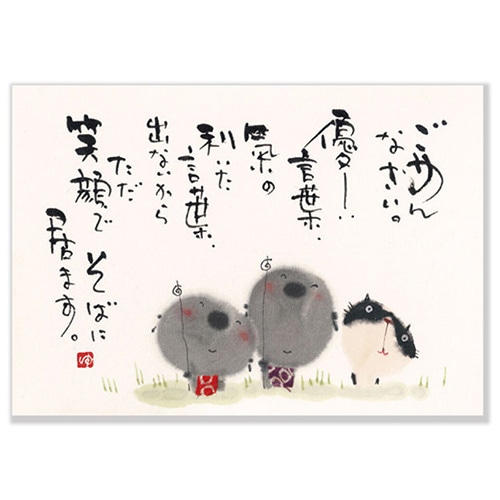 ごめん
なさい。
優しい
言葉、
気の
利いた
言葉、
出ないから
ただ
笑顔で
そばに
居ます。